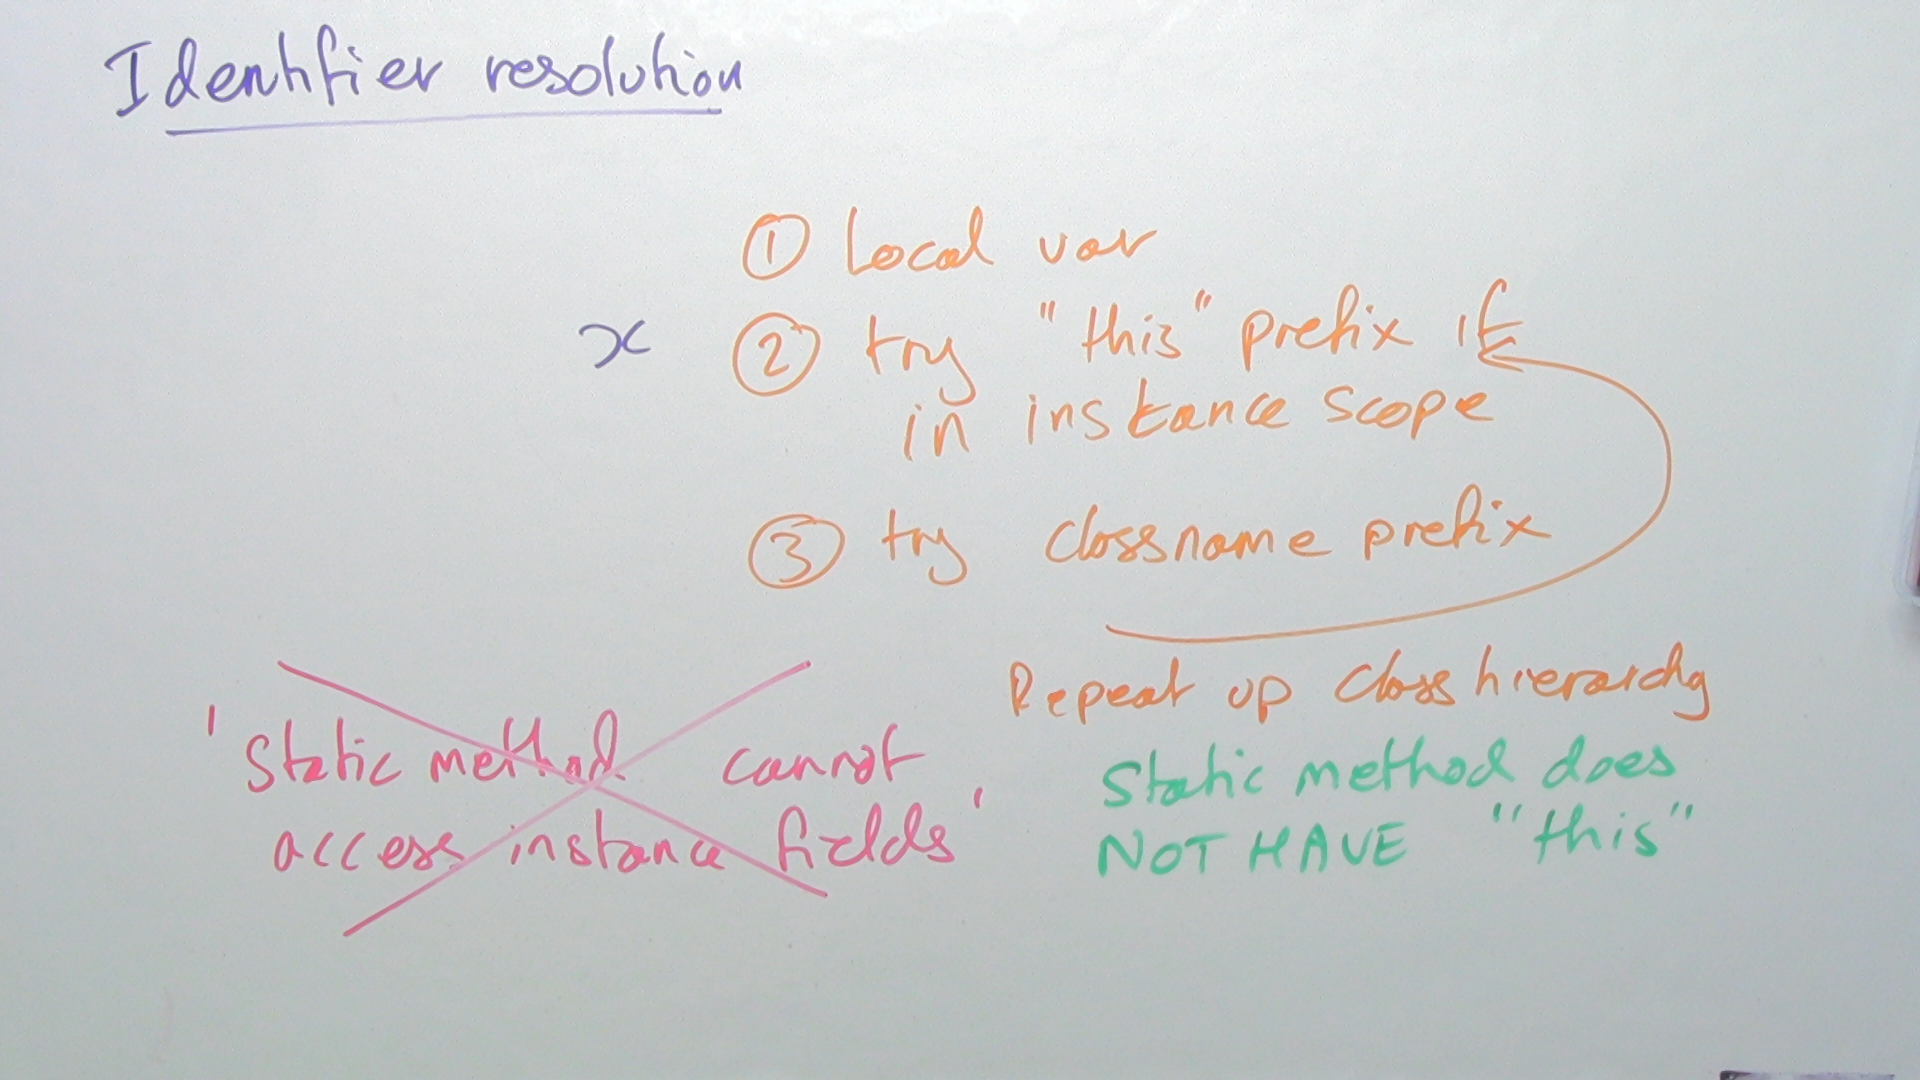 Identifier resolution
① Local var
x ② try "this" prefix if
in instance scope
③ try classname prefix
Repeat up class hierarchy
'Static method cannot
access instance fields'
Static method does
NOT HAVE "this"